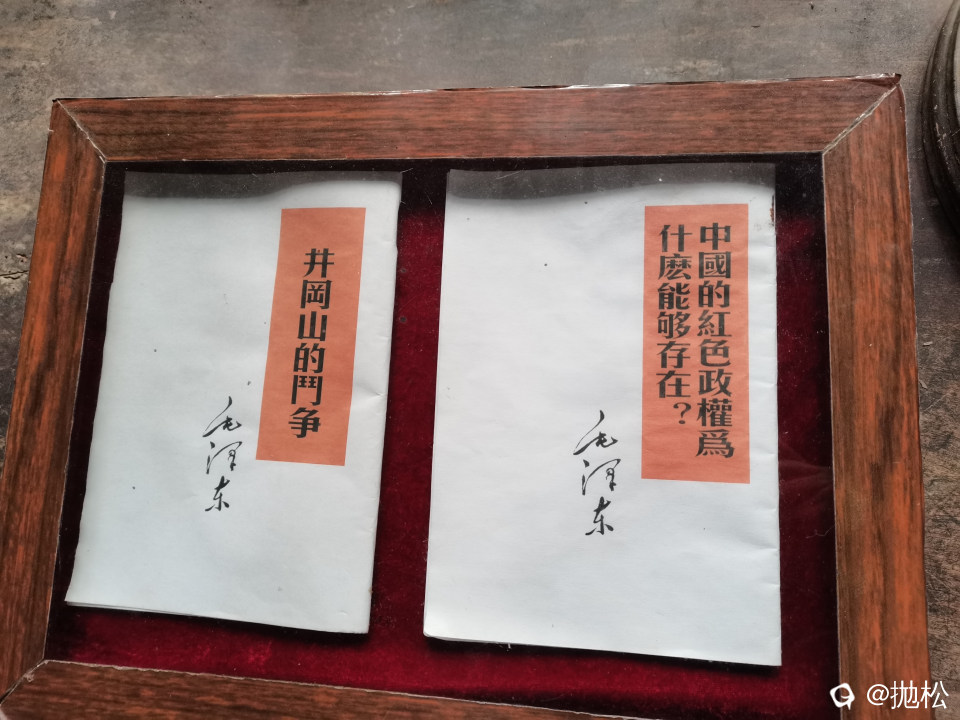 井岡山的鬥争
毛泽东
中國的紅色政權爲
什麽能够存在？
毛泽东
@抛松